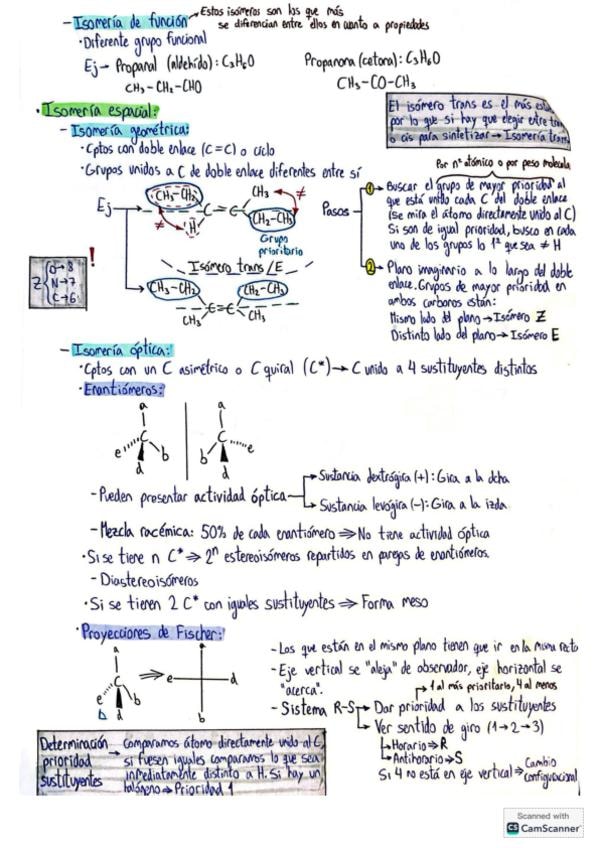 Estos isómeros son los que más
- Isomería de función → se diferencian entre ellos en cuanto a propiedades
· Diferente grupo funcional
Ej → Propanal (aldehído): C3H6O
Propanona (cetona): C3H6O
CH3 - CH2 - CHO
CH3 - CO - CH3
· Isomería espacial:
El isómero trans es el más
por lo que si hay que elegir entre
o cis para sintetizar → Isomería trans
- Isomería geométrica:
· Cptos con doble enlace (C=C) o ciclo
· Grupos unidos a C de doble enlace diferentes entre sí
Por nº atómico o por peso molecula
Ej
CH3-CH2
CH3
≠
C = C
≠
H
CH2-CH3
Grupo
prioritario
Isómero trans/E
CH3-CH2
CH2-CH3
C = C
CH3
CH3
Z
O→8
N→7
C→6
!
Pasos
1 Buscar el grupo de mayor prioridad al
que está unido cada C del doble enlace
(Se mira el átomo directamente unido al C)
Si son de igual prioridad, busco en cada
uno de los grupos lo 1º que sea ≠ H
2 Plano imaginario a lo largo del doble
enlace. Grupos de mayor prioridad en
ambos carbonos están:
Mismo lado del plano → Isómero Z
Distinto lado del plano → Isómero E
- Isomería óptica:
· Cptos con un C asimétrico o C quiral (C*) → C unido a 4 sustituyentes distintos
· Enantiómeros:
a
a
C
C
e
b
b
e
d
d
- Pueden presentar actividad óptica
Sustancia dextrógira (+): Gira a la dcha
Sustancia levógira (-): Gira a la izda
- Mezcla racémica: 50% de cada enantiómero ⇒ No tiene actividad óptica
· Si se tiene n C* ⇒ 2ⁿ estereoisómeros repartidos en parejas de enantiómeros.
- Diastereoisómeros
· Si se tienen 2 C* con iguales sustituyentes ⇒ Forma meso
· Proyecciones de Fischer:
a
a
C
e
b
d
⇒
e
d
b
- Los que están en el mismo plano tienen que ir en la misma recta
- Eje vertical se "aleja" de observador, eje horizontal se
"acerca".
1 al más prioritario, 4 al menos
- Sistema R-S → Dar prioridad a los sustituyentes
Ver sentido de giro (1→2→3)
Horario → R
Antihorario → S
Si 4 no está en eje vertical ⇒ Cambio
configuracional
Determinación
prioridad
sustituyentes
→ Comparamos átomo directamente unido al C,
si fuesen iguales comparamos lo que sea
inmediatamente distinto a H. Si hay un
halógeno ⇒ Prioridad 1
Scanned with
CS CamScanner